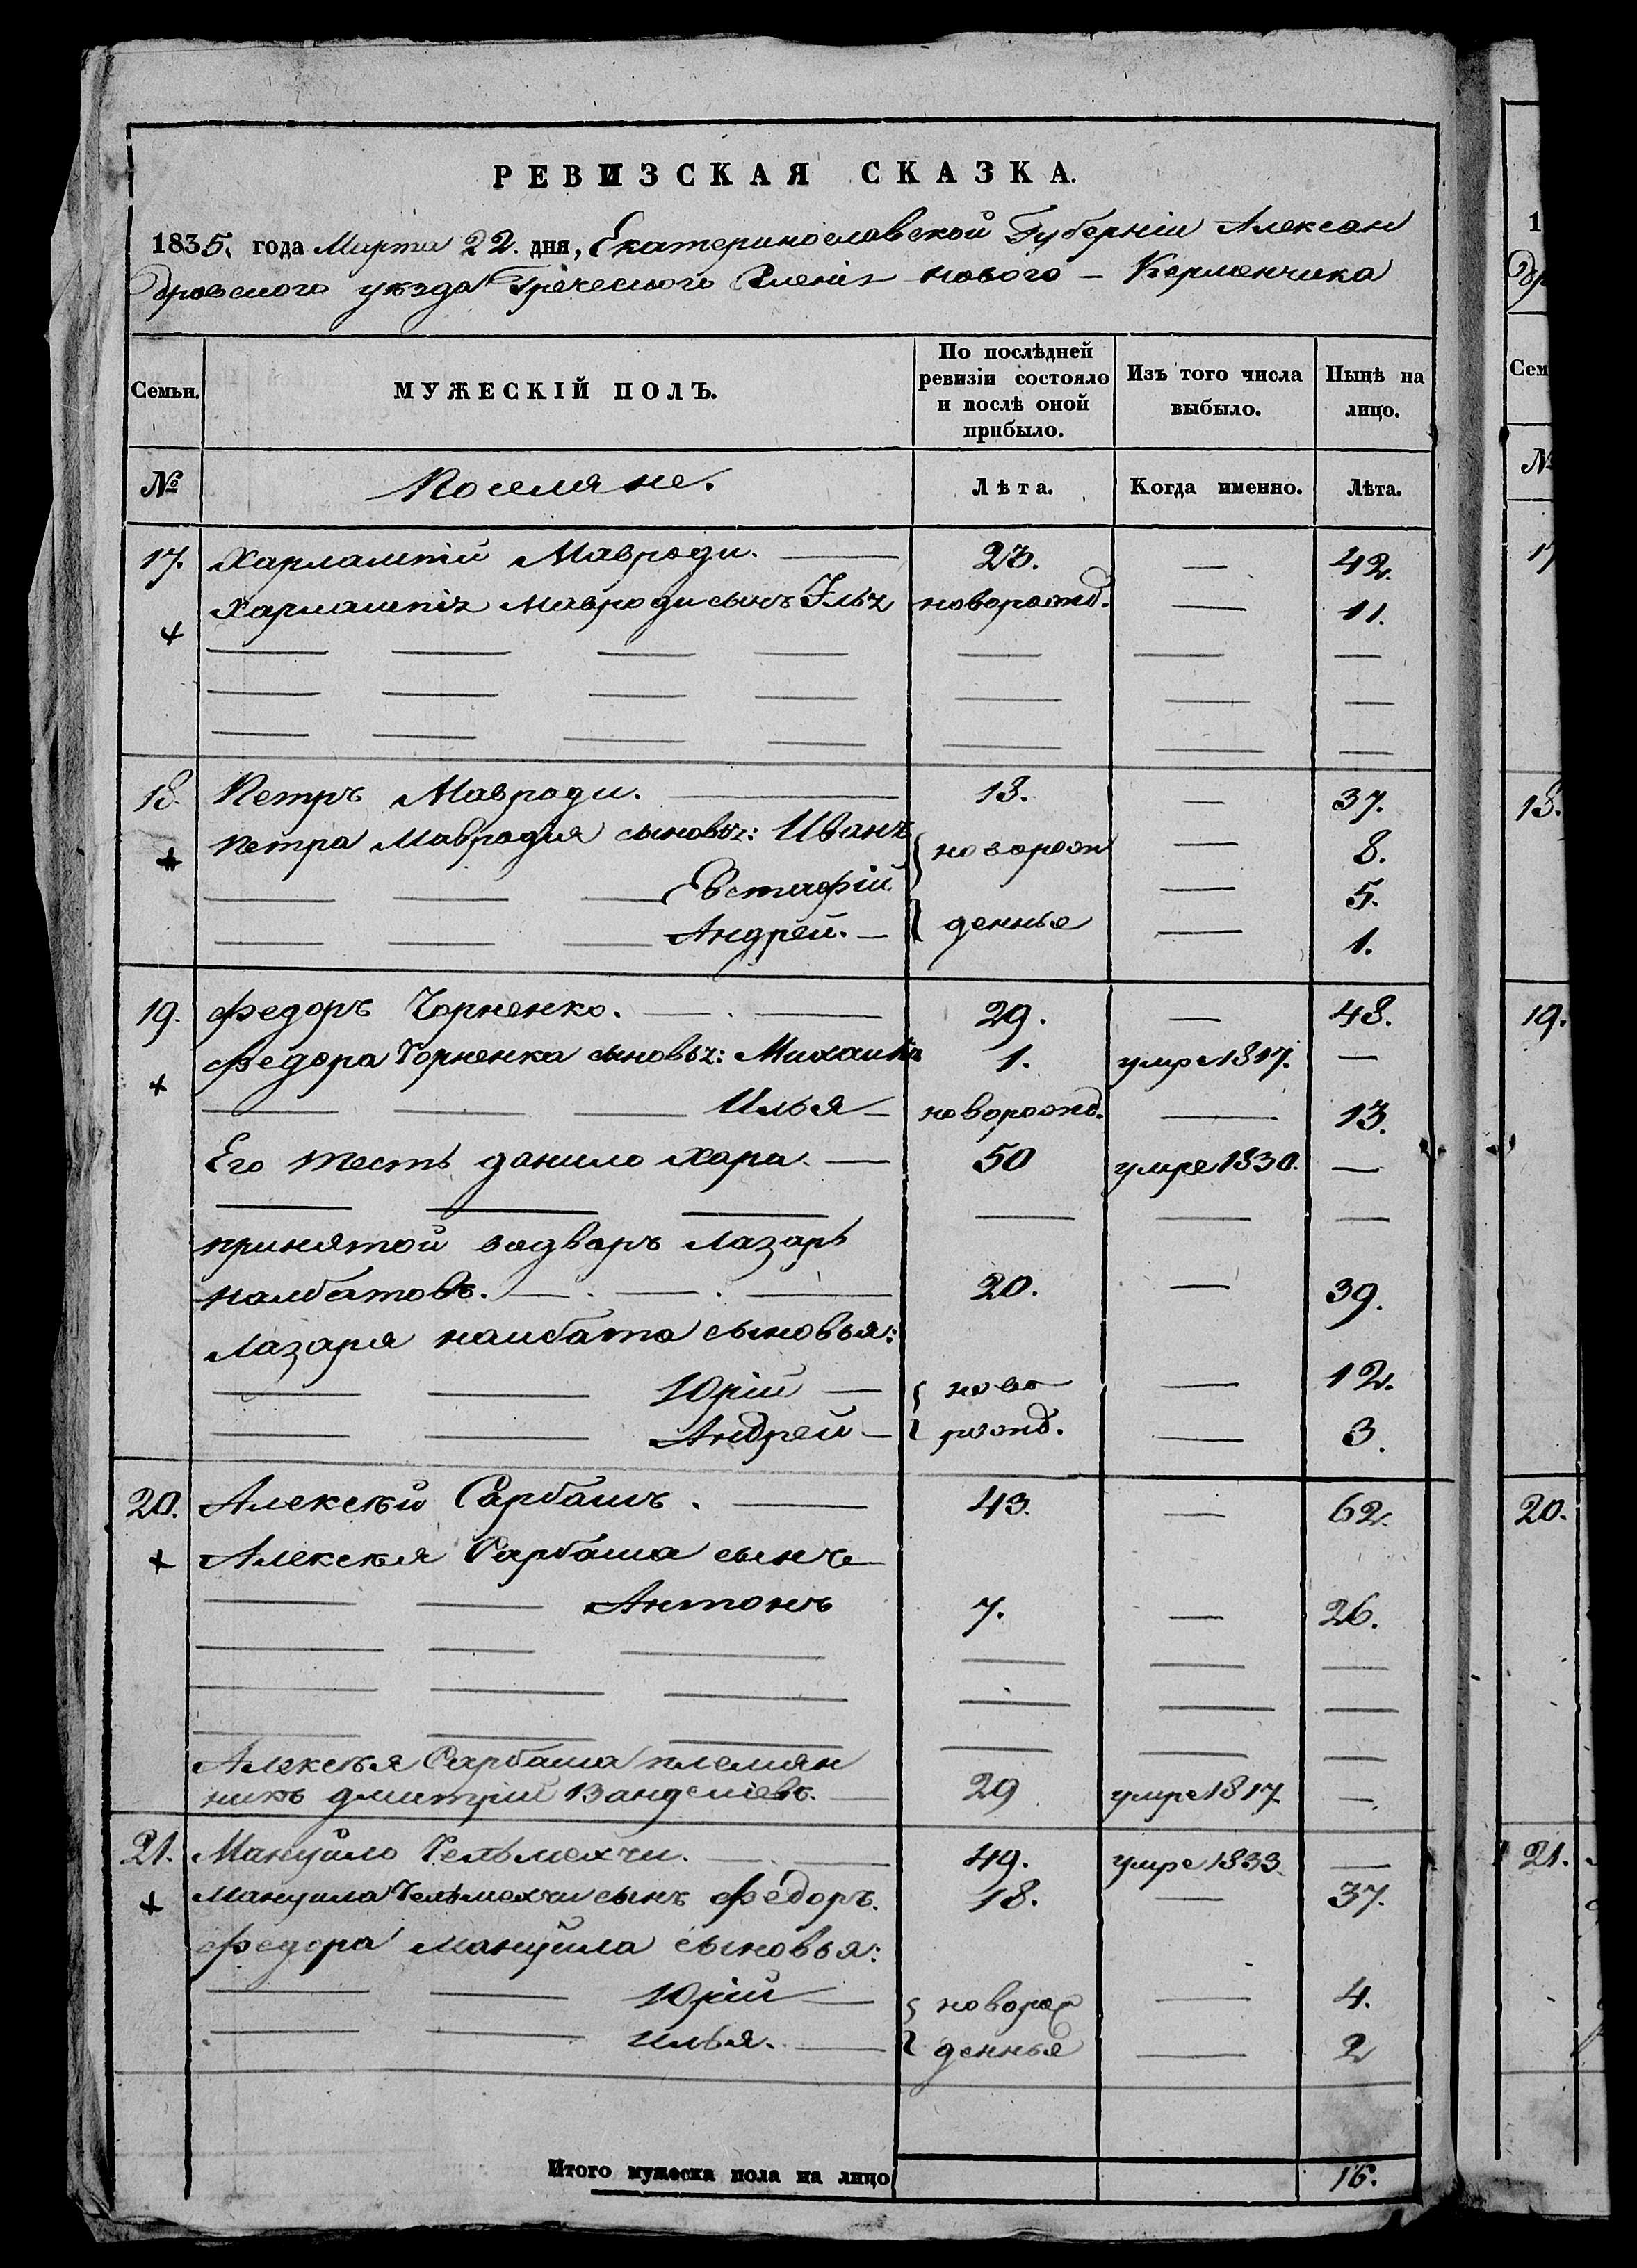 РЕВИЗСКАЯ СКАЗКА.
1835. года Марта 22. дня, Екатеринославской Губерніи Алексан
дровскаго уѣзда Греческого Селенія Нового - Керменчика
Семьи.
МУЖЕСКІЙ ПОЛЪ.
По послѣдней ревизіи состояло и послѣ оной прибыло.
Изъ того числа выбыло.
Нынѣ на лицо.
№ Поселяне. Лѣта. Когда именно. Лѣта.
17. Харлампій Мавроди. 23. — 42.
Харлампія Мавроди сынъ Илья новорожд. — 11.
18. Петръ Мавроди. 18. — 37.
Петра Мавродия сыновья: Иванъ новорож — 8.
Евстафій — 5.
Андрей. денные — 1.
19. Федоръ Чорненко. 29. — 48.
Федора Чорненка сыновья: Михаилъ 1. умре 1817. —
Илья новорожд. — 13.
Его тесть данило Хара. 50 умре 1830. —
принятой вадворъ Лазарь
налбатовъ. 20. — 39.
Лазаря налбата сыновья:
Юрій ново — 12.
Андрей рожд. — 3.
20. Алексѣй Сарбашъ. 43. — 62.
Алексѣя Сарбаша сынъ
Антонъ 7. — 26.
Алексѣя Сарбаша племян
никъ дмитрій 29 умре 1817. —
21. Мануйло Чельмехчи. 49. умре 1833. —
Мануила Чельмехчи сынъ Федоръ. 18. — 37.
Федора Мануйла сыновья:
Юрій новорож — 4.
Илья. денные — 2
Итого мужеска пола на лицо 16.
1
др
Сем
№
17
18.
19.
20.
21.